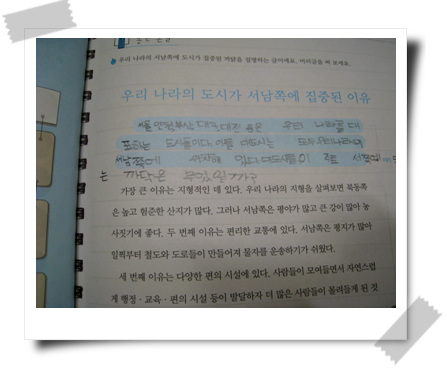 우리 나라의 도시가 서남쪽에 집중된 까닭을 설명하는 글이에요. 머리글을 써 보세요.
우리 나라의 도시가 서남쪽에 집중된 이유
서울 인천 부산 대구, 대전 등은 우리 나라를 대
표하는 도시들이다. 이들 도시는 모두 우리나라의
서남쪽에 위치해 있다. 이 도시들이 주로 서쪽에 있
는 까닭은 무엇일까?
가장 큰 이유는 지형적인 데 있다. 우리 나라의 지형을 살펴보면 북동쪽
은 높고 험준한 산지가 많다. 그러나 서남쪽은 평야가 많고 큰 강이 많아 농
사짓기에 좋다. 두 번째 이유는 편리한 교통에 있다. 서남쪽은 평지가 많아
일찍부터 철도와 도로들이 만들어져 물자를 운송하기가 쉬웠다.
세 번째 이유는 다양한 편의 시설에 있다. 사람들이 모여들면서 자연스럽
게 행정·교육·편의 시설 등이 발달하자 더 많은 사람들이 몰려들게 된 것